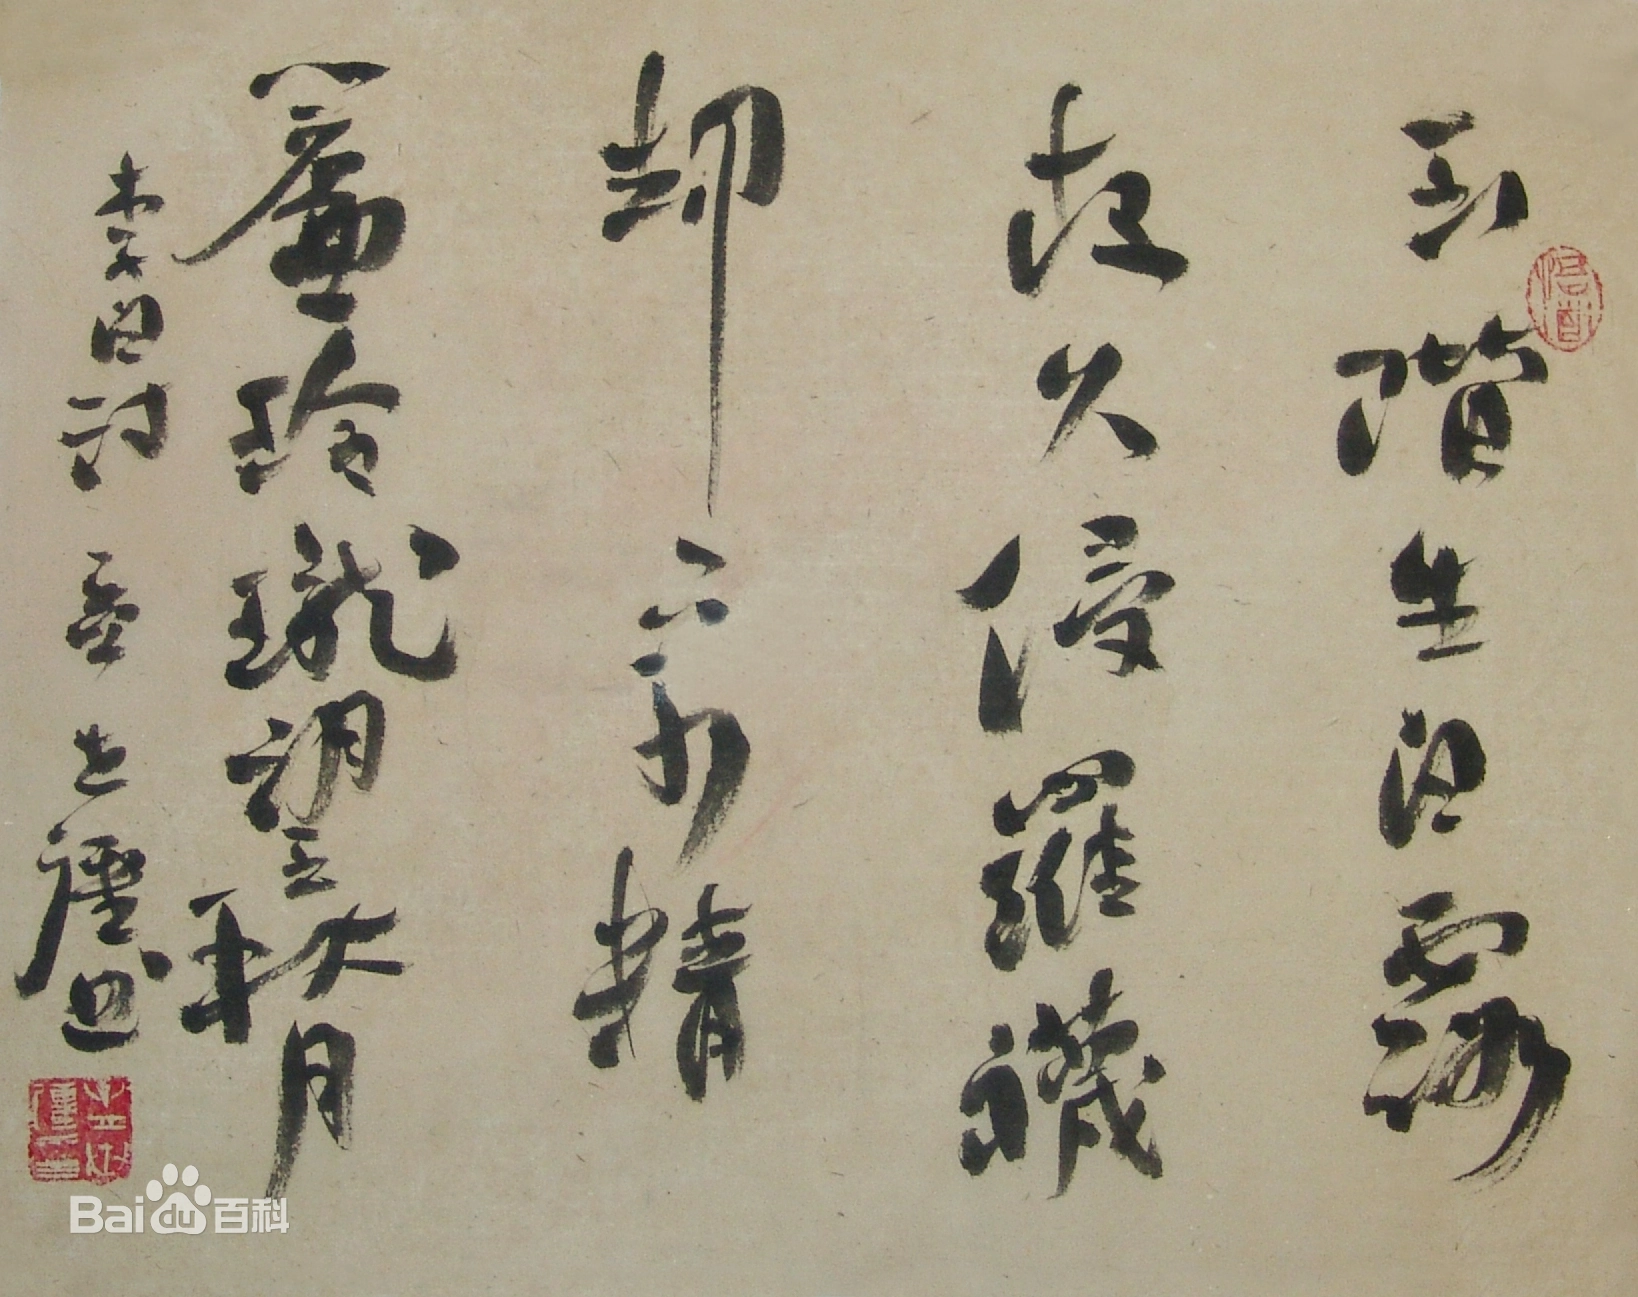 玉階生白露
夜久侵羅襪
却下水精
簾玲瓏望秋月
李白詩
Bai百科